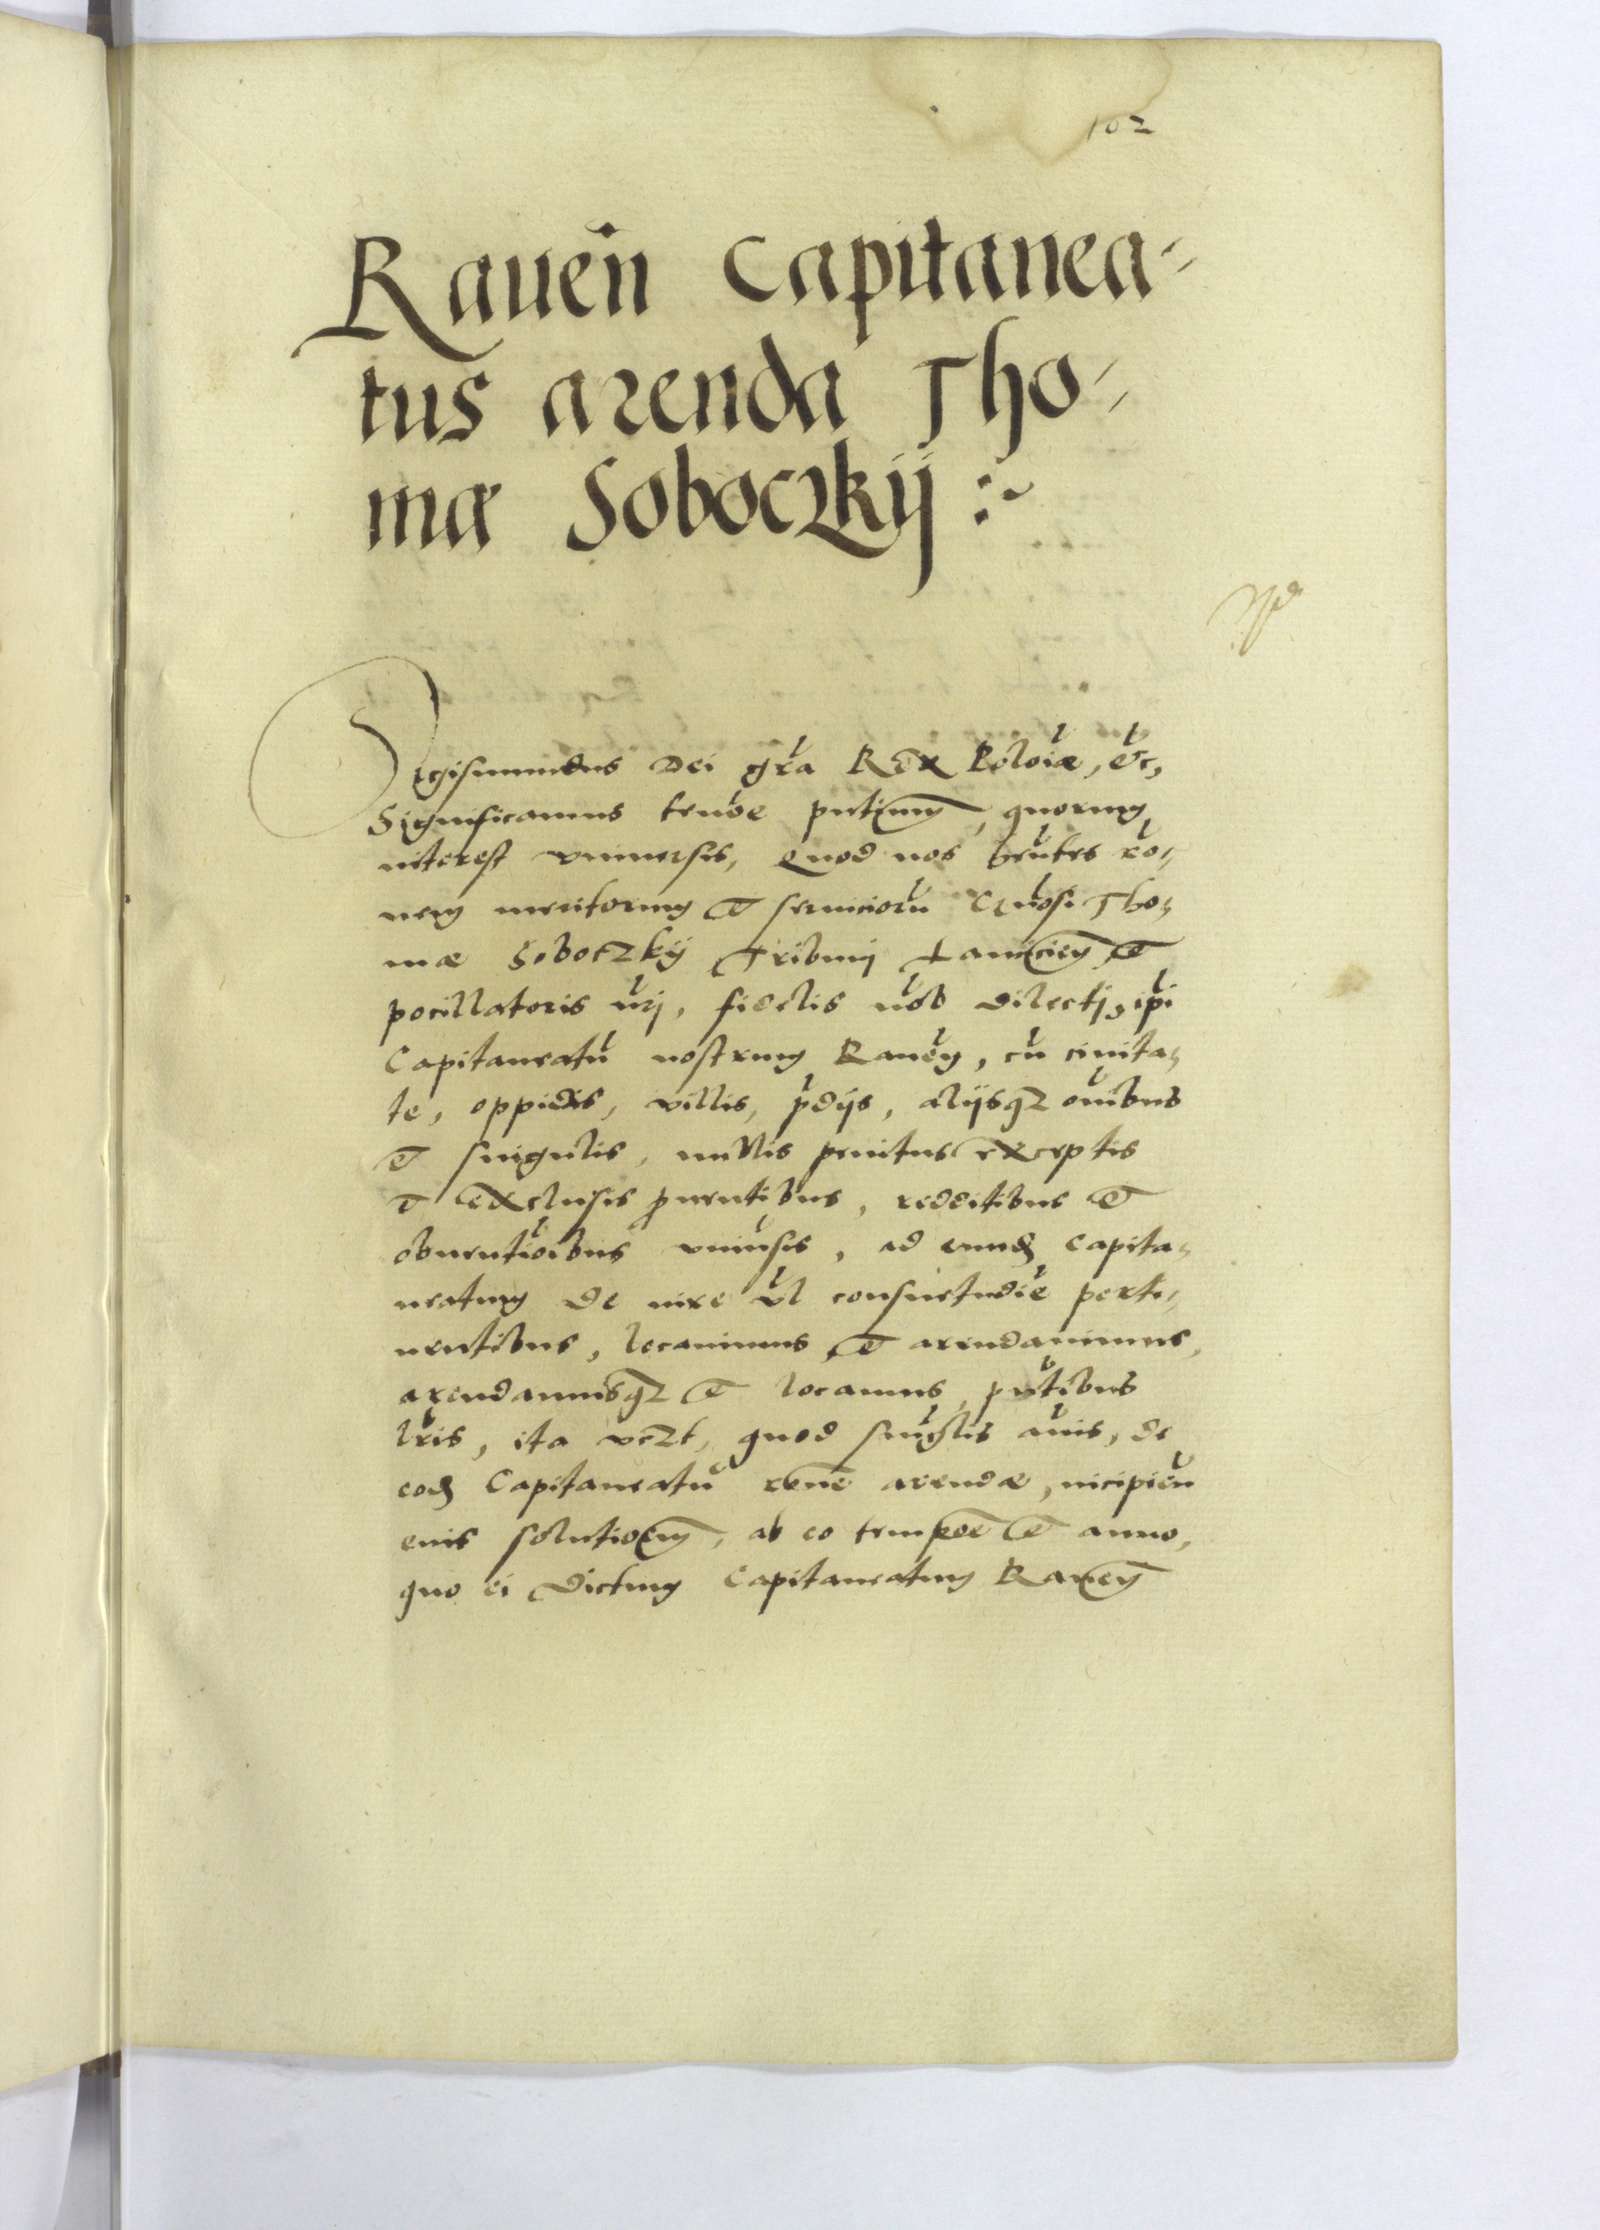 102
Raueñ Capitanea-
tus arenda Tho-
mæ Soboczkij :~
Sigismundus Dei gr̃a Rex Poloiæ, etc,
Significamus tenõe pñtium, quorum
interest vniuersis, Quod nos hñtes rõ-
nem meritorum et seruicioru Gñosi Tho-
mæ Soboczkij Tribuni Lanicien et
pocillatoris nr̃i, fidelis nob dilecti, ip̃i
Capitaneatu nostrum Rauen, cu ciuita-
te, oppidis, villis, p̃dijs, alijsqz oñibus
et singulis, nullis penitus exceptis
et exclusis prouentibus, redditibus et
obuentioibus vniũsis, ad eund Capita-
neatum de iure vl consuetudie perti-
nentibus, locauimus et arendauimus,
arendamusqz et locamus, pñtibus
lr̃is, ita vczt, quod singlis añis, de
eod Capitaneatu rõne arendæ, incipien
eius solutionem, ab eo tempoẽ et anno,
quo ei dictum Capitaneatum Rauen